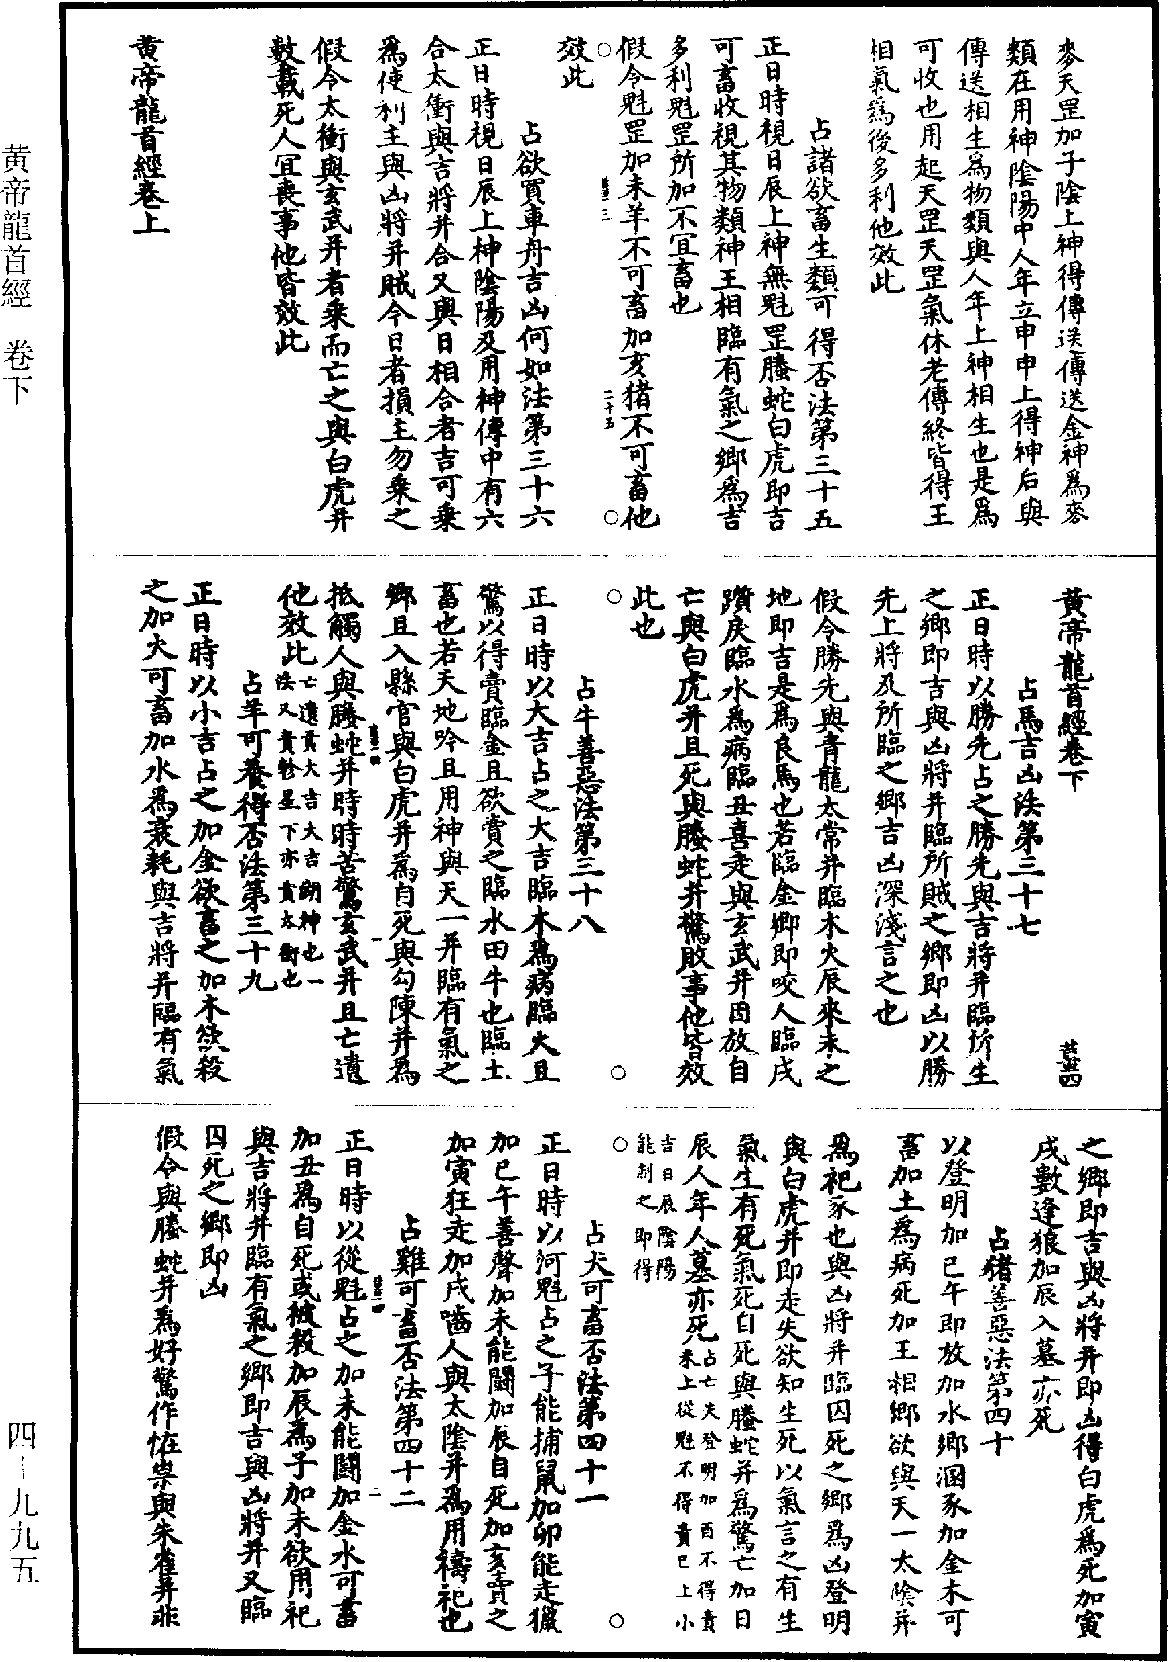 麥天罡加子陰上神得傳送傳送金神為麥
類在用神陰陽中人年立申申上得神后與
傳送相生為物類與人年上神相生也是為
可收也用起天罡天罡氣休老傳終皆得王
相氣為後多利他效此
占諸欲畜生類可得否法第三十五
正日時視日辰上神無魁罡螣蛇白虎即吉
可畜收視其物類神王相臨有氣之鄉為吉
多利魁罡所加不宜畜也
假令魁罡加未羊不可畜加亥猪不可畜他
效此
占欲買車舟吉凶何如法第三十六
正日時視日辰上神陰陽及用神傳中有六
合太衝與吉將并合又與日相合者吉可乘
為使利主與凶將并賊今日者損主勿乘之
假令太衝與玄武并者乘而亡之與白虎并
數載死人宜喪事他皆效此
黃帝龍首經卷上
黃帝龍首經卷下
占馬吉凶法第三十七
正日時以勝先占之勝先與吉將并臨所生
之鄉即吉與凶將并臨所賊之鄉即凶以勝
先上將及所臨之鄉吉凶深淺言之也
假令勝先與青龍太常并臨木火辰來未之
地即吉是為良馬也若臨金鄉即咬人臨戌
躓戾臨水為病臨丑喜走與玄武并因放自
亡與白虎并且死與螣蛇并驚敗事他皆效
此也
占牛善惡法第三十八
正日時以大吉占之大吉臨木為病臨火且
驚以得賣臨金且欲賣之臨水田牛也臨土
畜也若天地吟且用神與天一并臨有氣之
鄉且入縣官與白虎并為自死與勾陳并為
抵觸人與螣蛇并時時苦驚玄武并且亡遺
他效此亡遺責大吉大吉閉神也一
法又責軫星下亦責太衝也
占羊可養得否法第三十九
正日時以小吉占之加金欲畜之加木欲殺
之加火可畜加水為衰耗與吉將并臨有氣
之鄉即吉與凶將并即凶得白虎為死加寅
戌數逢狼加辰入墓亦死
占猪善惡法第四十
以登明加巳午即放加水鄉溷豕加金木可
畜加土為病死加王相鄉欲與天一太陰并
為祀豕也與凶將并臨囚死之鄉為凶登明
與白虎并即走失欲知生死以氣言之有生
氣生有死氣死白死與螣蛇并為驚亡加日
辰人年人墓亦死占亡失登明加酉不得責
未上從魁不得責巳上小
吉日辰陰陽
能制之即得
占犬可畜否法第四十一
正日時以河魁占之子能捕鼠加卯能走獵
加巳午善聲加未能鬪加辰自死加亥賣之
加寅狂走加戌嚙人與太陰并為用禱祀也
占雞可畜否法第四十二
正日時以從魁占之加未能鬪加金水可畜
加丑為自死或被殺加辰為子加未欲用祀
與吉將并臨有氣之鄉即吉與凶將并又臨
囚死之鄉即凶
假令與螣蛇并為好驚作怪祟與朱雀并非
黃帝龍首經 卷下
四－九九五